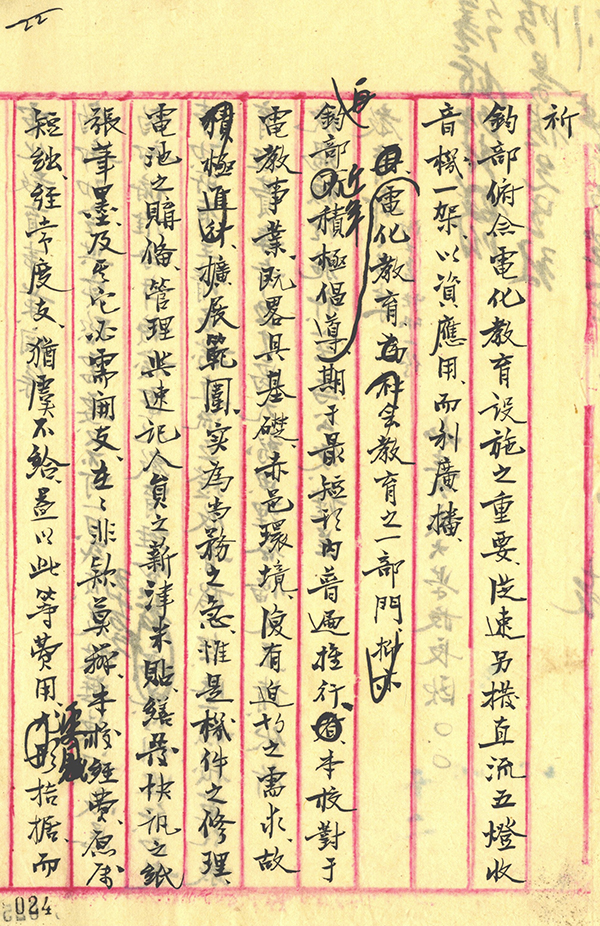 祈
鈞部俯念電化教育設施之重要、從速另撥直流五燈收
音機一架、以資應用、而利廣播、
再電化教育為社會教育之一部門
鈞部近年積極倡導期于最短期內普遍推行、本校對于
電教事業、既畧具基礎、亦邑環境、復有迫切之需求、故
積極進行、擴展範圍、实為当務之急、惟是機件之修理、
電池之購備、管理与速記人員之薪津米貼、繕發快訊之紙
張筆墨、及其它必需開支、在在非款莫辦、本校經費、原屬
短絀、經常度支、猶虞不給、益以此等費用、拮据、而
22
024